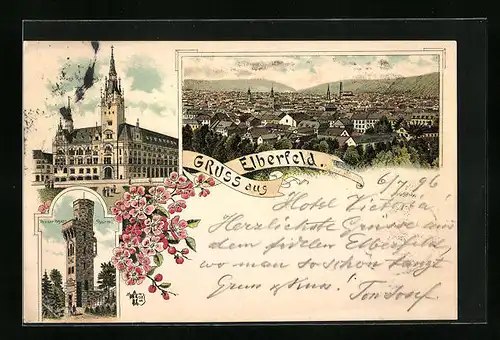 GRUSS aus
Elberfeld.
6/7 96
Hotel Victoria
Herzlichste Grüsse aus
dem fidelen Elberfeld
wo man so schön tanzt
Gruss & Kuss! Von Josef